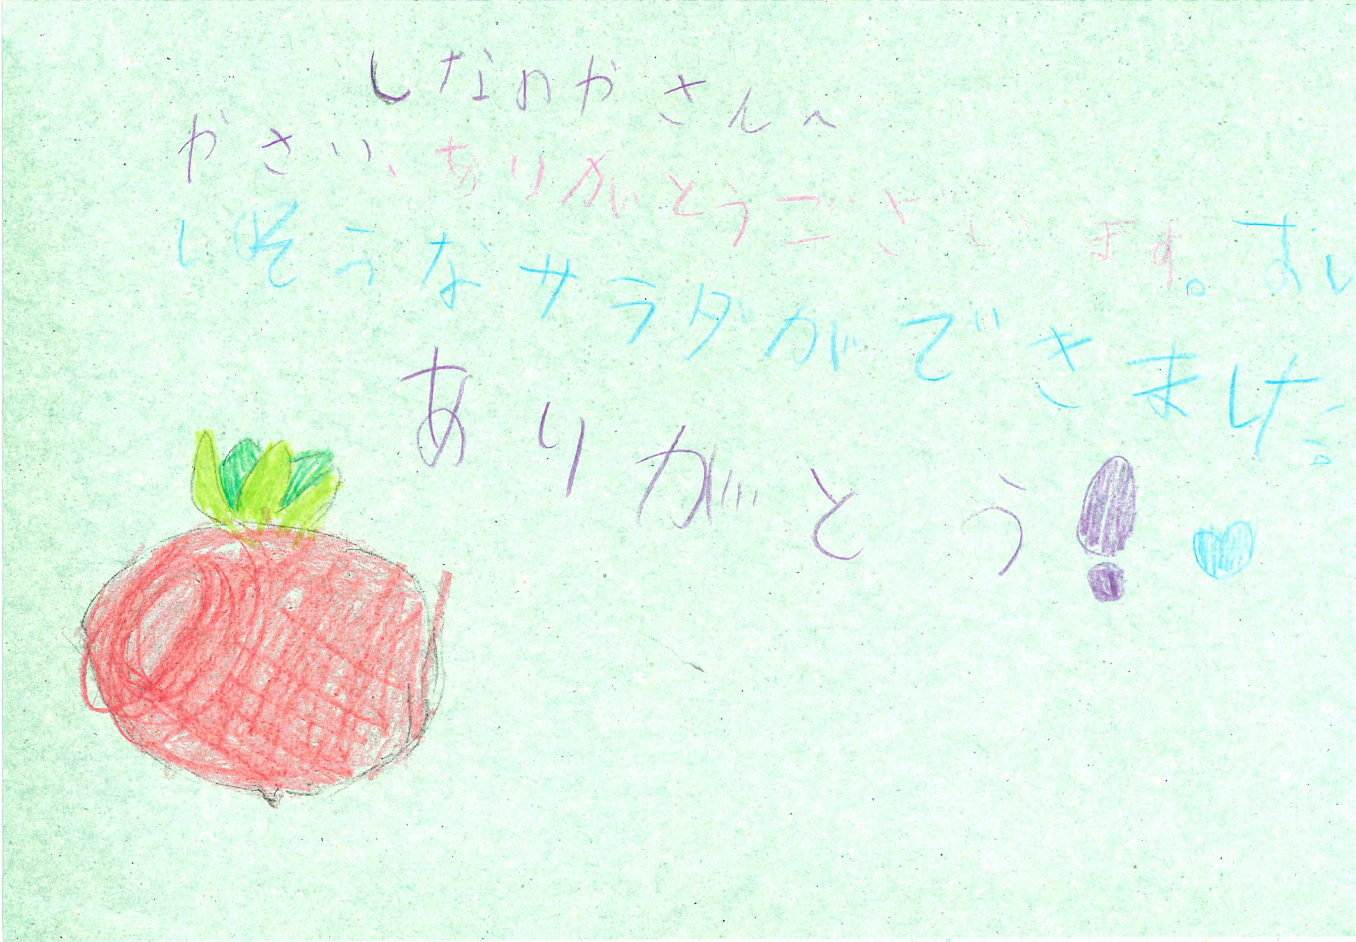 しなのやさんへ
やさい、ありがとうございます。おい
しそうなサラダができました。
ありがとう!